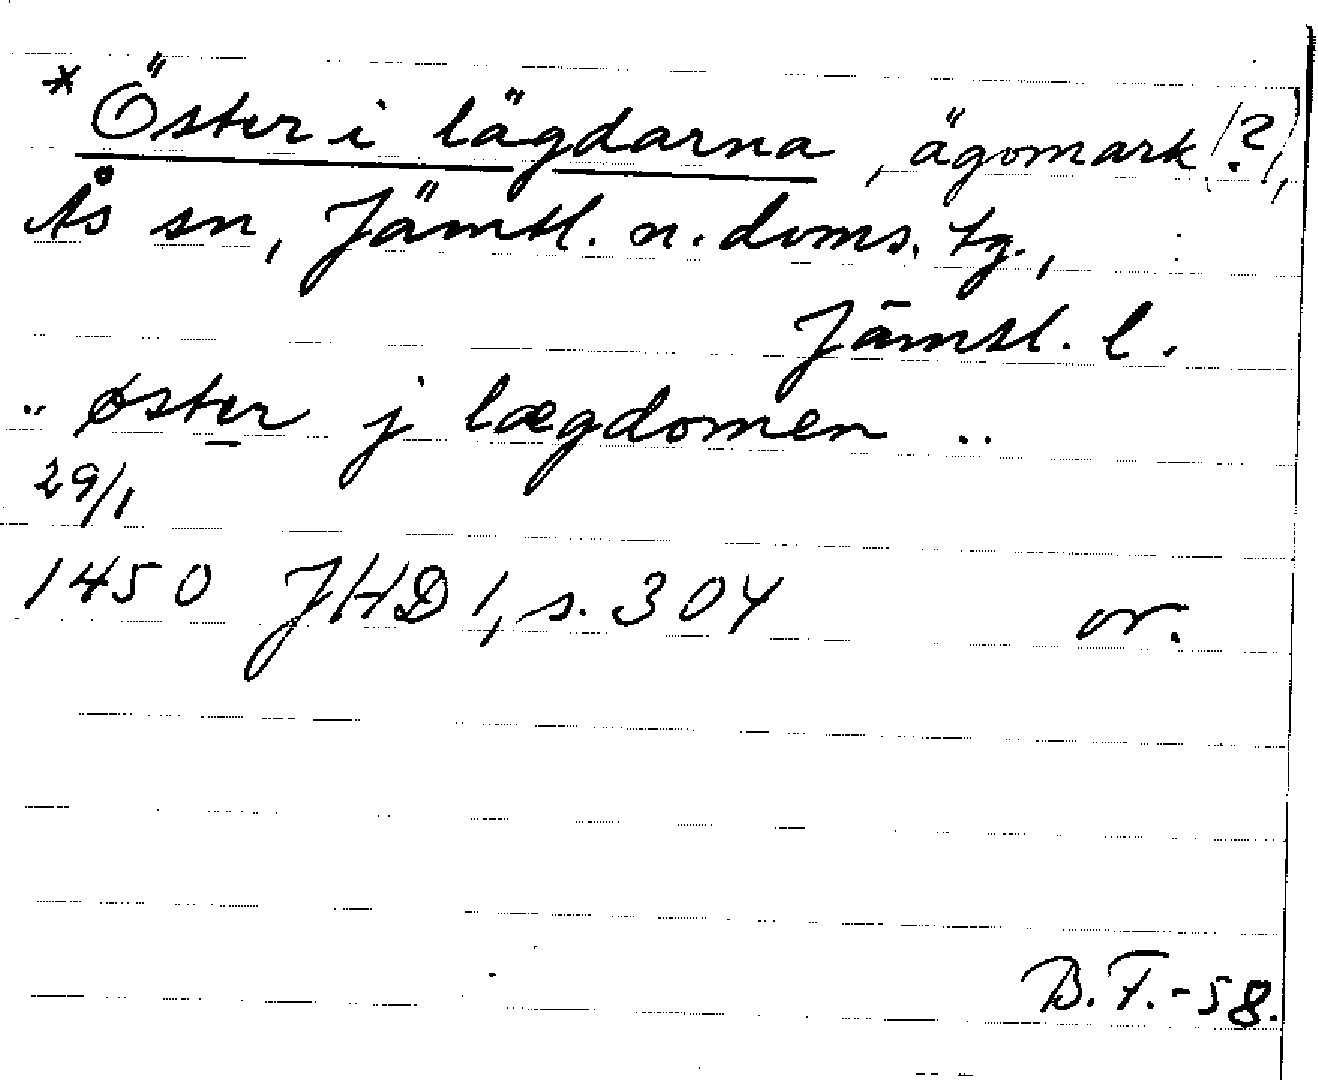 * Öster i lägdarna, ägomark (?),
Ås sn, Jämtl. n. doms. tg.,
Jämtl. l.
.. øster j lægdomen ..
29/1
1450 JHD 1, s. 304 or.
B. F. - 58.